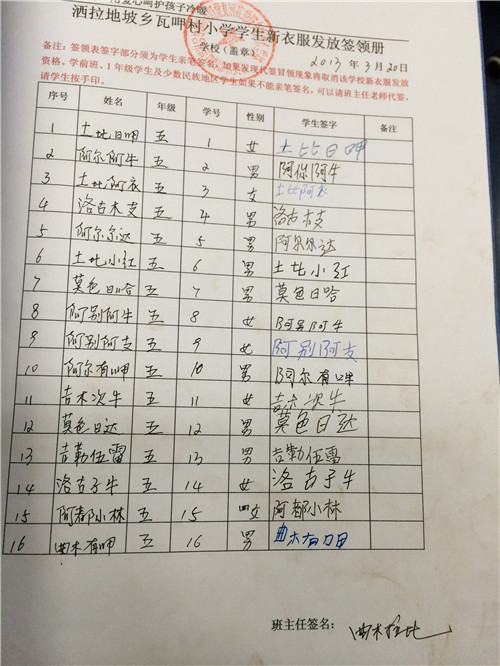 用爱心呵护孩子冷暖
洒拉地坡乡瓦呷村小学学生新衣服发放签领册
学校（盖章） 2013 年 3 月 20 日
备注：签领表签字部分须为学生亲笔签名，如果发现代签冒领现象将取消该学校新衣服发放
资格。学前班、1 年级学生及少数民族地区学生如果不能亲笔签名，可以请班主任老师代签，
请学生按手印。
序号 姓名 年级 学号 性别 学生签字 备注
1 土比日呷 五 1 女 土比日呷
2 阿尔阿牛 五 2 男 阿你阿牛
3 土比阿衣 五 3 女 土比阿衣
4 洛古木支 五 4 男 洛古木支
5 阿尔尔达 五 5 男 阿尔尔达
6 土比小红 五 6 男 土比小红
7 莫色日哈 五 7 男 莫色日哈
8 阿别阿牛 五 8 女 阿别阿牛
9 阿别阿支 五 9 女 阿别阿支
10 阿尔有呷 五 10 男 阿尔有呷
11 吉木次牛 五 11 女 吉木次牛
12 莫色日达 五 12 男 莫色日达
13 吉勒伍雷 五 13 男 吉勒伍雷
14 洛古子牛 五 14 女 洛古子牛
15 阿都小林 五 15 女 阿都小林
16 曲木有呷 五 16 男 曲木有呷
班主任签名： 曲木拉比